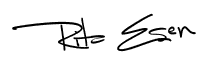 Rita Esen